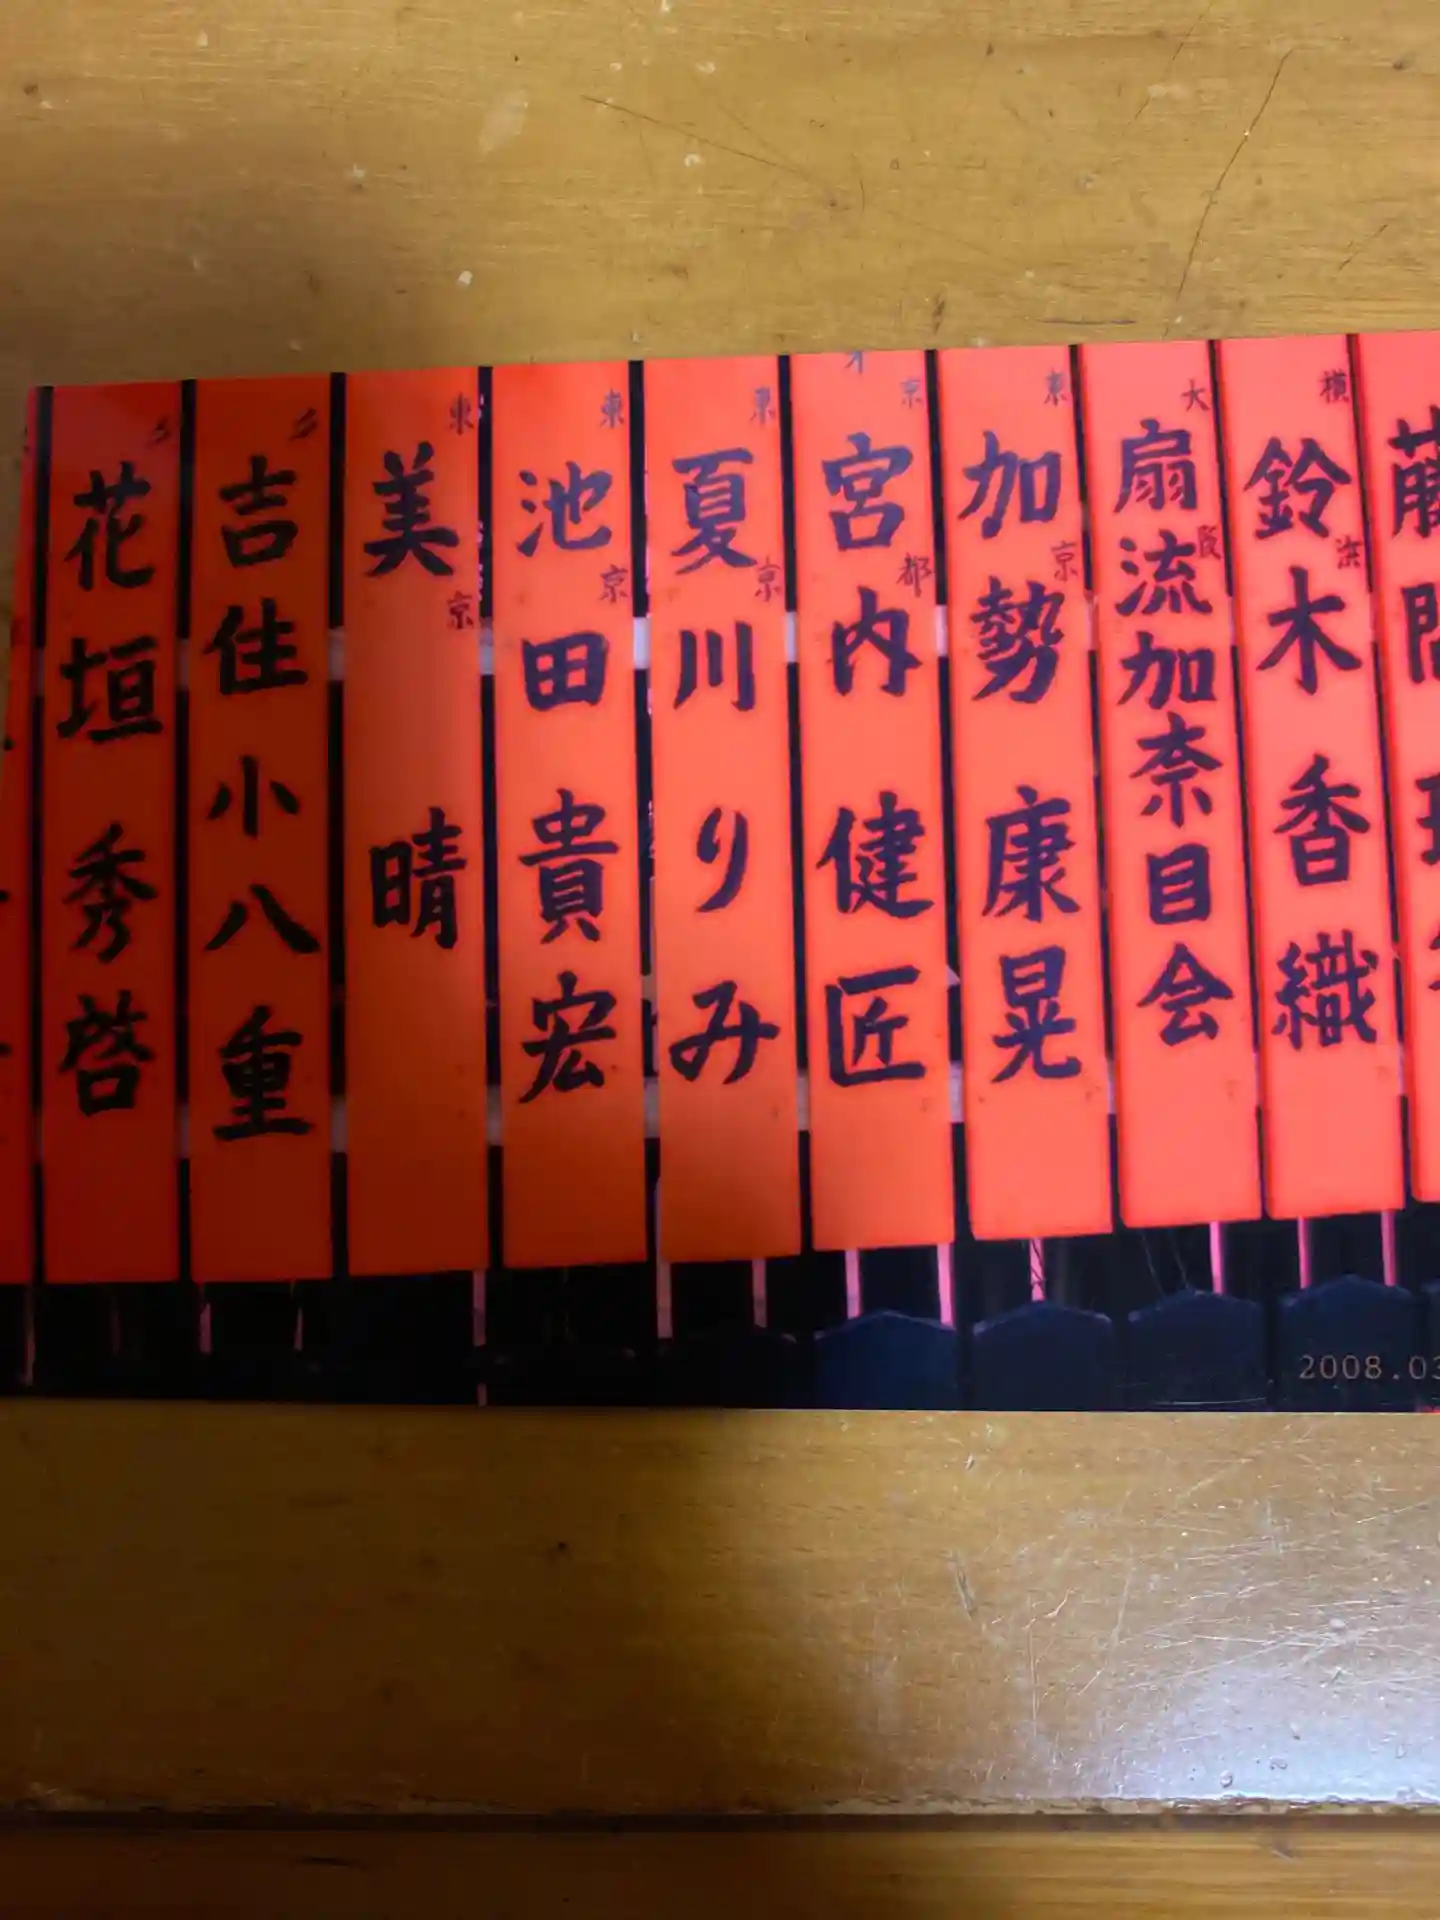 横浜
鈴木香織
大阪
扇流加奈目会
東京
加勢康晃
京都
宮内健匠
東京
夏川りみ
東京
池田貴宏
東京
美晴
吉佳小八重
花垣秀啓
2008.03